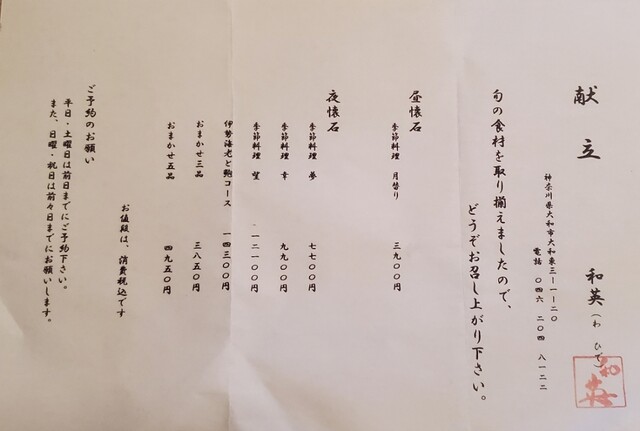 献立
和英(わ ひで)
神奈川県大和市大和東三-一-二〇
電話 〇四六 二〇四 八一二二
旬の食材を取り揃えましたので、
どうぞお召し上がり下さい。
昼懐石
季節料理 月替り 三九〇〇円
夜懐石
季節料理 夢 七七〇〇円
季節料理 幸 九九〇〇円
季節料理 望 一二一〇〇円
伊勢海老と鮑コース 一四三〇〇円
おまかせ三品 三八五〇円
おまかせ五品 四九五〇円
お値段は、消費税込です
ご予約のお願い
平日・土曜日は前日までにご予約下さい。
また、日曜・祝日は前々日までにお願いします。
和英